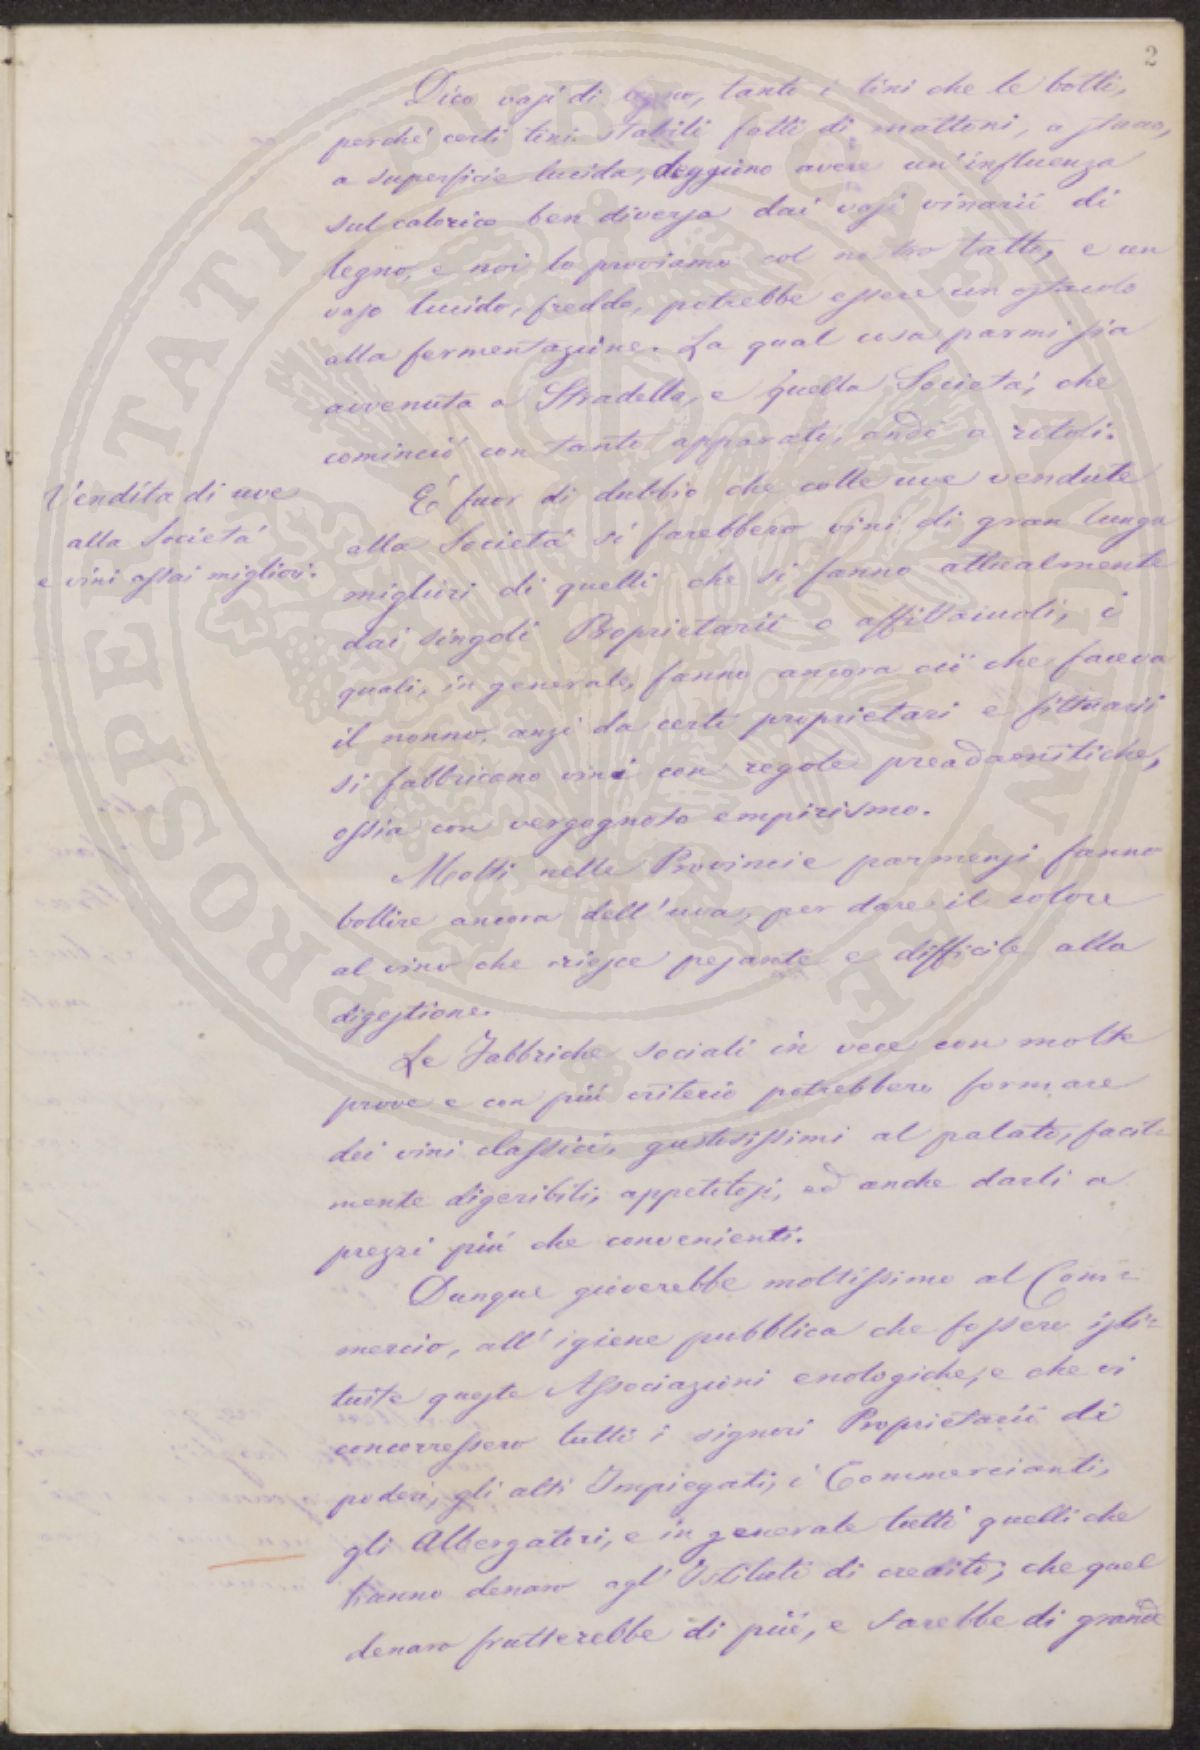 2
Dico vasi di legno, tanto i tini che le botti,
perché certi tini stabili fatti di mattoni, a
a superficie lucida, deggiono avere un'influenza
sul calorico ben diversa dai vasi vinarii di
legno, e noi lo proviamo col nostro tatto, e un
vaso lucido, freddo, potrebbe essere un ostacolo
alla fermentazione. La qual cosa parmi sia
avvenuta a Stradella, e quella Società, che
cominciò con tanto apparato, andò a rotoli.
Vendita di uve
alla Società
e vini assai migliori.
É fuor di dubbio che colle uve vendute
alla Società si farebbero vini di gran lunga
migliori di quelli che si fanno attualmente
dai singoli Proprietarii o affittaiuoli, i
quali, in generale, fanno ancora ciò che faceva
il nonno, anzi da certi proprietari e fittuarii
si fabbricano vini con regole preadamitiche,
ossia con vergognoso empirismo.
Molti nelle Provincie parmensi fanno
bollire ancora dell'uva, per dare il colore
al vino che riesce pesante e difficile alla
digestione.
Le Fabbriche sociali in vece con molte
prove e con più criterio potrebbero formare
dei vini classici, gustosissimi al palato, facil=
mente digeribili, appetitosi, ed anche darli a
prezzi più che convenienti.
Dunque gioverebbe moltissimo al Com=
mercio, all'igiene pubblica che fossero isti=
tuite queste Associazioni enologiche, e che vi
concorressero tutti i signori Proprietarii di
poderi, gli alti Impiegati, i Commercianti,
gli Albergatori, e in generale tutti quelli che
hanno denaro agl'Istituti di credito, che quel
denaro frutterebbe di più, e sarebbe di grande
PROSPERITATI PUBLICAE AUGENDAE